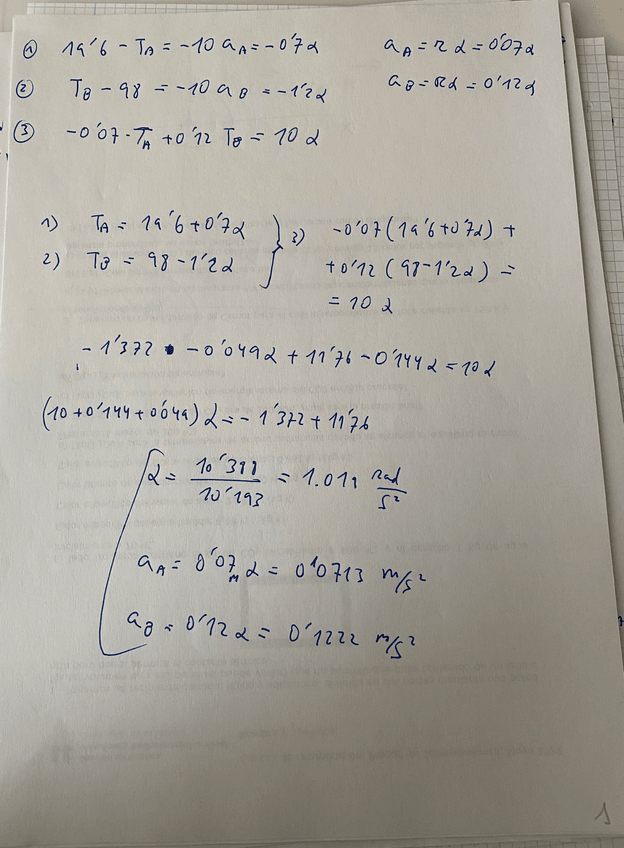 ① 19'6 - TA = -10 aA = -0'7α aA = r α = 0'07α
② TB - 98 = -10 aB = -1'2α aB = Rα = 0'12α
③ -0'07·TA + 0'12 TB = 10 α
1) TA = 19'6 + 0'7α } 3) -0'07 (19'6 + 0'7α) +
2) TB = 98 - 1'2α + 0'12 (98 - 1'2α) =
= 10 α
- 1'372 - 0'049α + 11'76 - 0'144α = 10α
(10 + 0'144 + 0'049) α = - 1'372 + 11'76
α = 10'388 / 10'193 = 1.019 rad/s²
aA = 0'07m α = 0'0713 m/s²
aB = 0'12α = 0'1222 m/s²
1